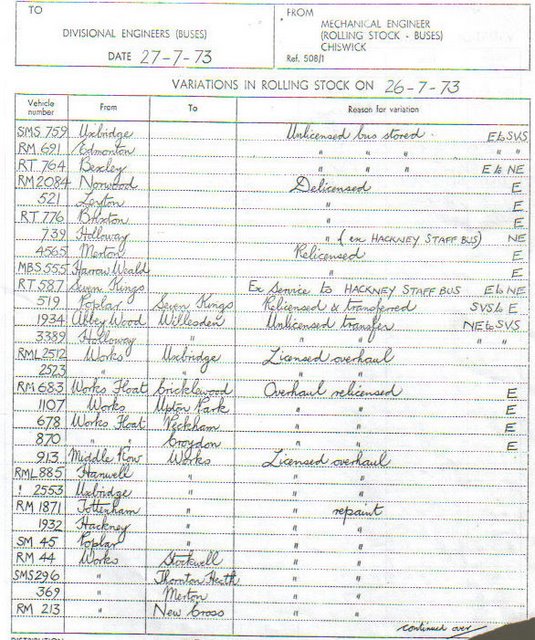 TO
DIVISIONAL ENGINEERS (BUSES)
DATE 27-7-73
FROM
MECHANICAL ENGINEER
(ROLLING STOCK - BUSES)
CHISWICK
Ref. 508/1
VARIATIONS IN ROLLING STOCK ON 26-7-73
Vehicle number From To Reason for variation
SMS 759 Uxbridge Unlicensed bus stored. E to SVS
RM 691 Edmonton " " " " "
RT 764 Bexley " " " E to NE
RM 2084 Norwood Delicensed E
521 Leyton " E
RT 776 Brixton " E
739 Holloway " (ex HACKNEY STAFF BUS) NE
4565 Merton Relicensed E
MBS 555 Harrow Weald " E
RT 587 Seven Kings Ex Service to HACKNEY STAFF BUS E to NE
519 Poplar Seven Kings Relicensed & transferred SVS to E
1934 Abbey Wood Willesden Unlicensed transfer NE to SVS
3389 Holloway " " " " "
RML 2512 Works Uxbridge Licensed overhaul
2523 " " " "
RM 683 Works Float Cricklewood Overhaul relicensed E
1107 Works Upton Park " " E
678 Works Float Peckham " " E
870 " " Croydon " " E
913 Middle Row Works Licensed overhaul
RML 885 Hanwell " " "
" 2553 Uxbridge " " "
RM 1871 Tottenham " " repaint
1932 Hackney " " "
SM 45 Poplar " " "
RM 44 Works Stockwell " "
SMS 296 " Thornton Heath " "
369 " Merton " "
RM 213 " New Cross " "
continued over